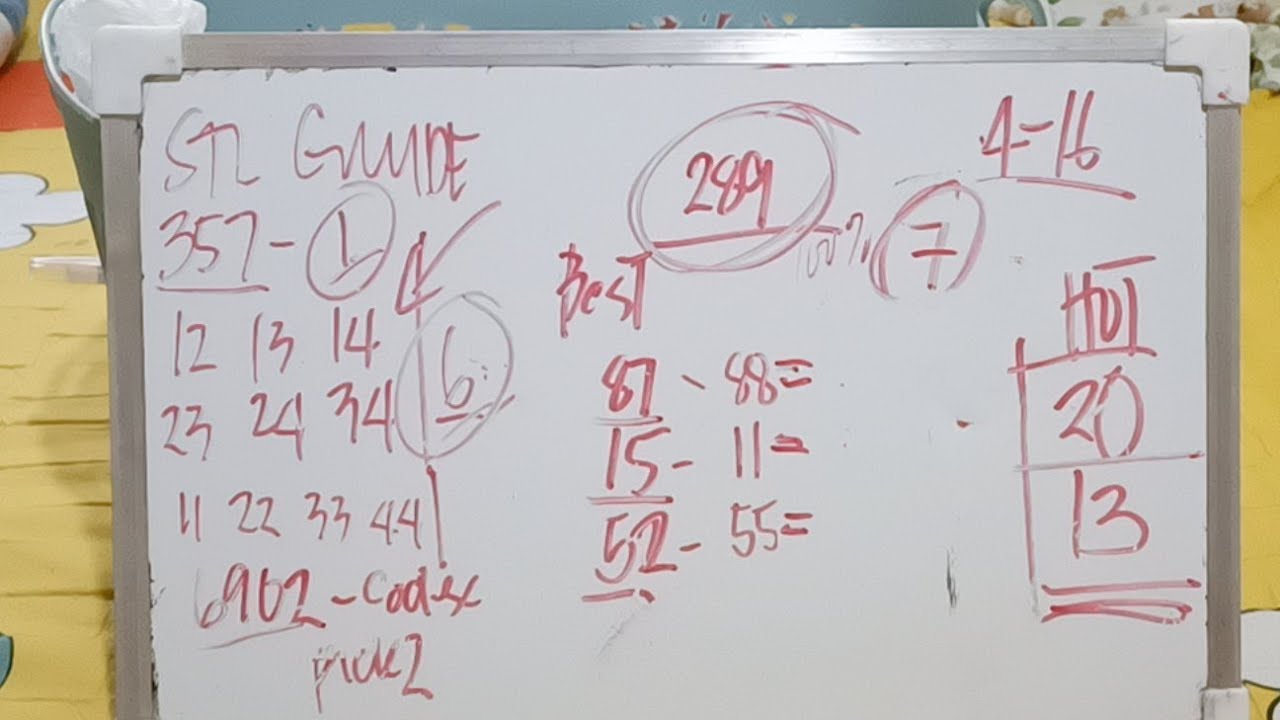 STL GUIDE
357 - 1
12 13 14
23 24 34
6
11 22 33 44
6902 - Codec
pick 2
289
100% 7
Best
87 - 88=
15 - 11=
52 - 55=
4=16
HOT
20
13